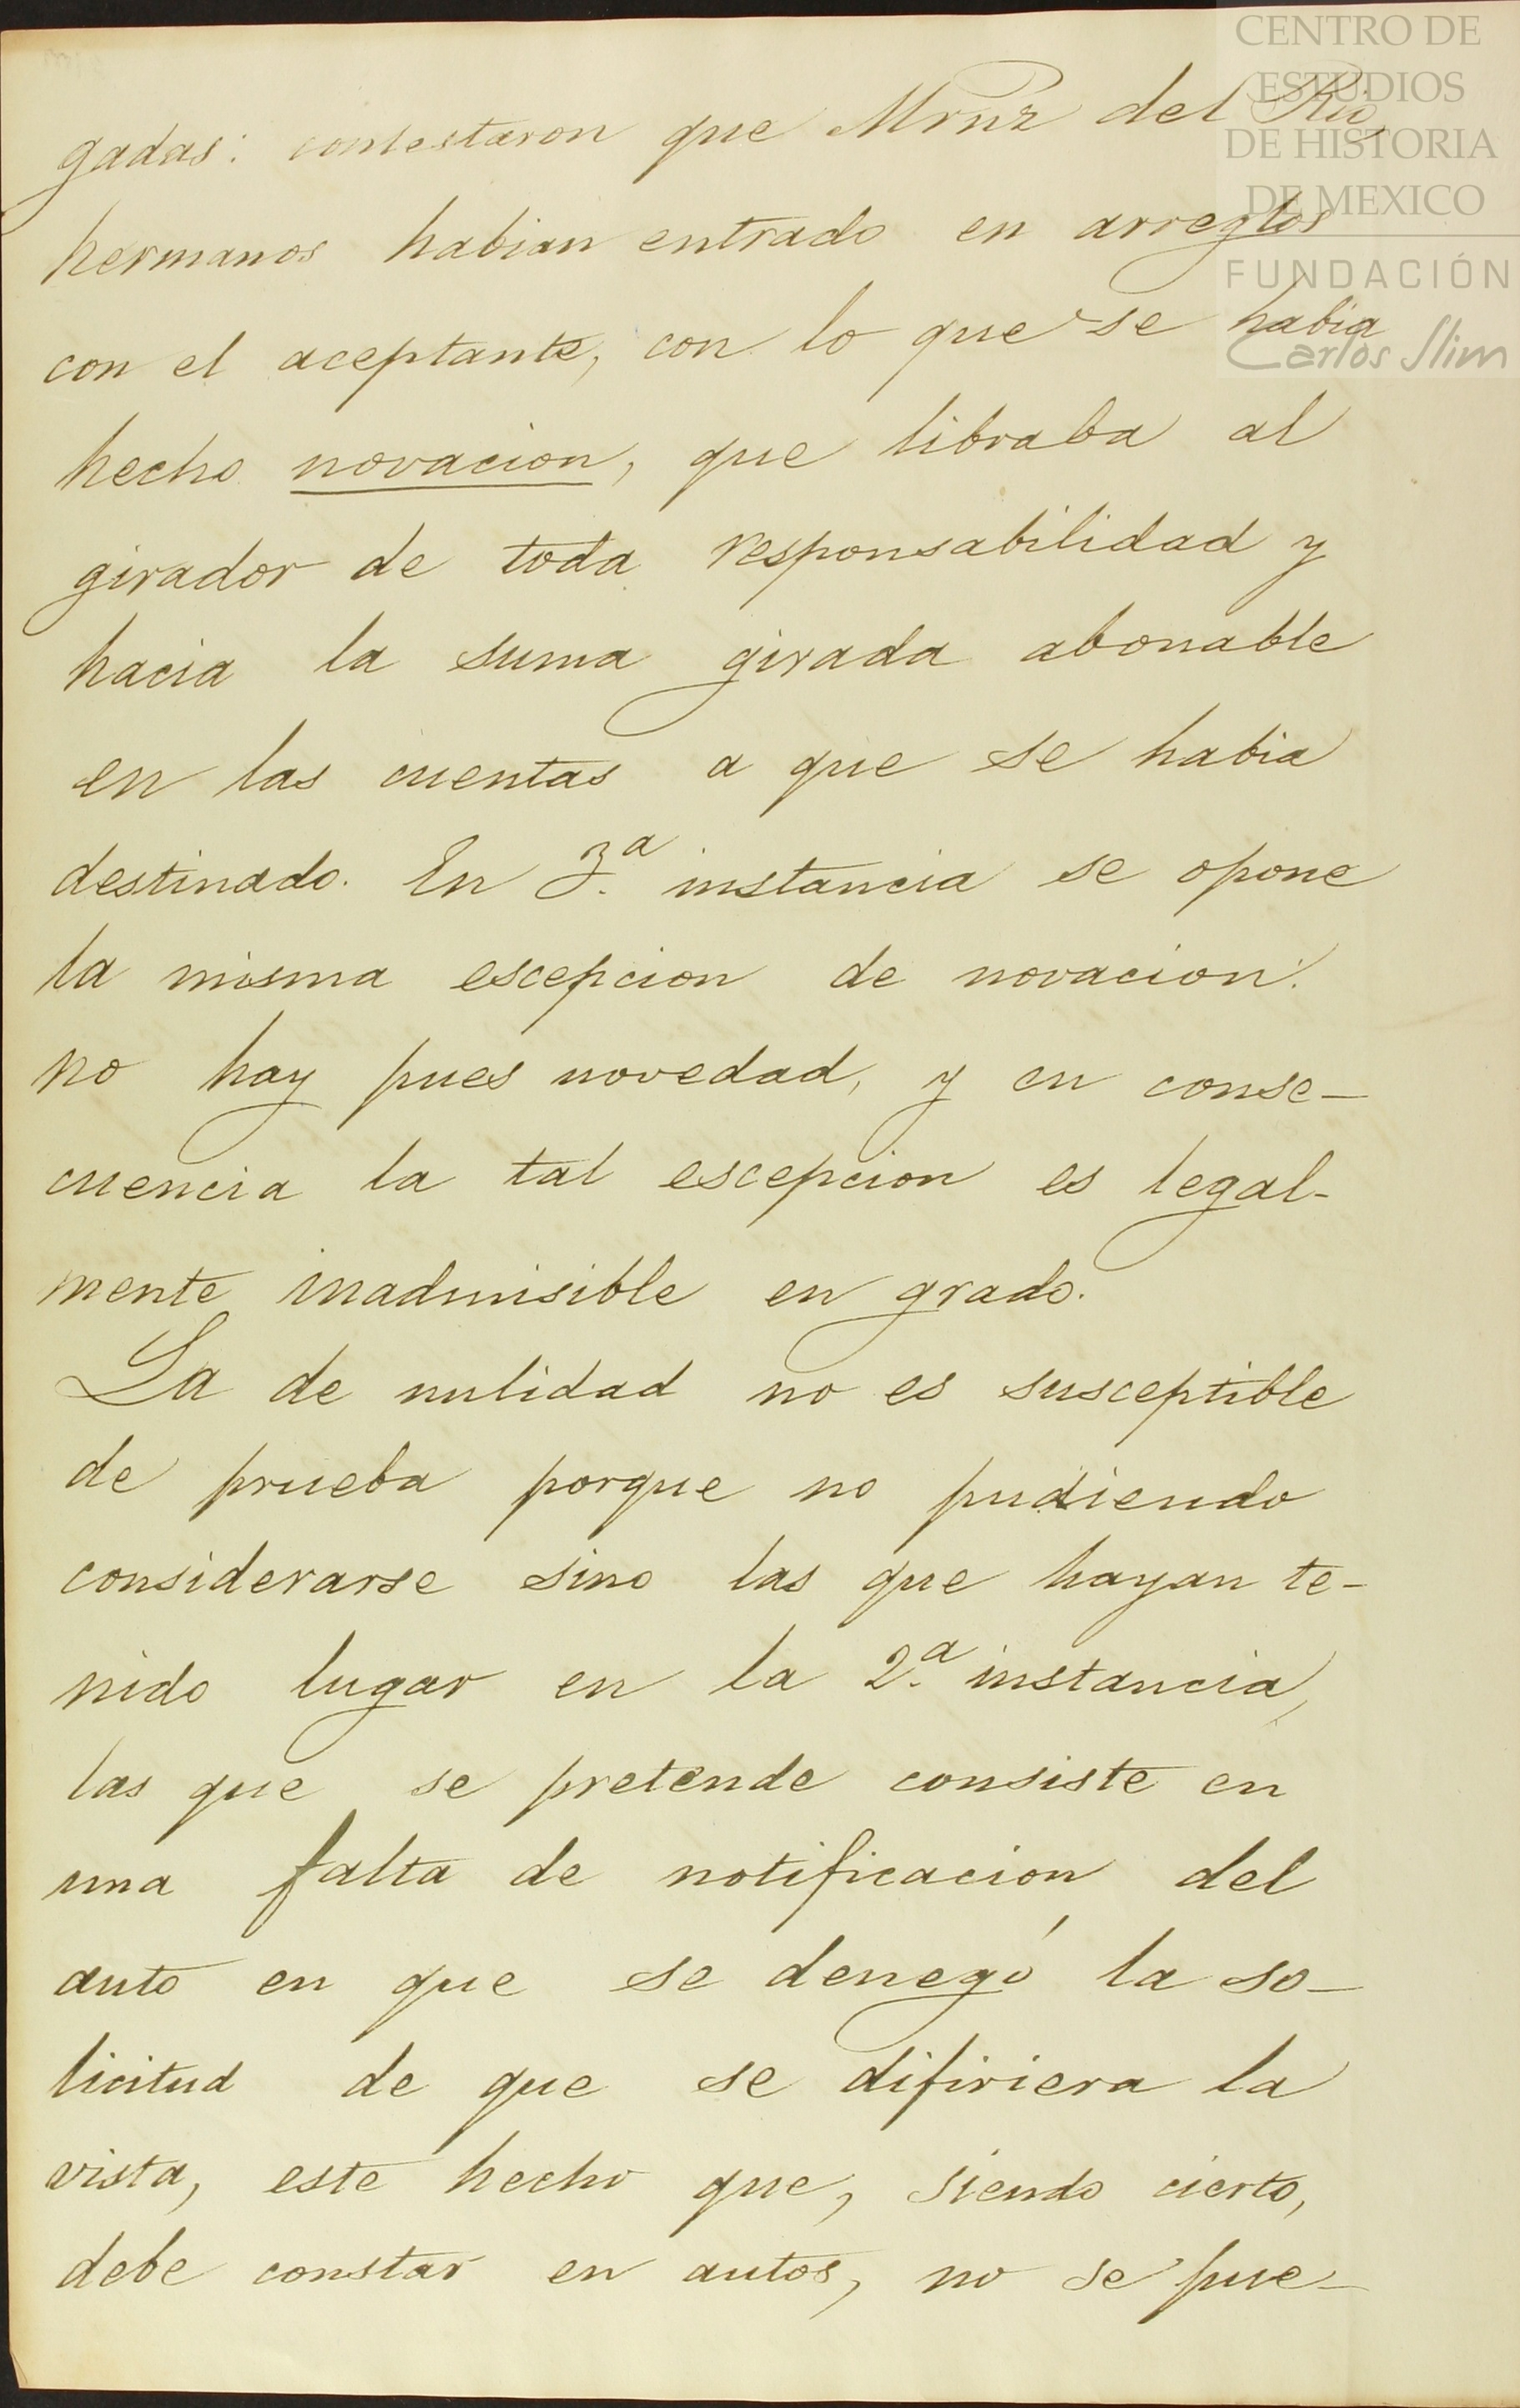 CENTRO DE
ESTUDIOS
DE HISTORIA
DE MEXICO
FUNDACIÓN
Carlos Slim
gadas: contestaron que Mrnz del Rio
hermanos habian entrado en arreglos
con el aceptante, con lo que se habia
hecho novacion, que libraba al
girador de toda responsabilidad y
hacia la suma girada abonable
en las cuentas a que se habia
destinado. En 3.ª instancia se opone
la misma escepcion de novacion:
no hay pues novedad, y en conse-
cuencia la tal escepcion es legal-
mente inadmisible en grado.
La de nulidad no es susceptible
de prueba porque no pudiendo
considerarse sino las que hayan te-
nido lugar en la 2.ª instancia,
las que se pretende consiste en
una falta de notificacion del
auto en que se denegó la so-
licitud de que se difiriera la
vista, este hecho que, siendo cierto,
debe constar en autos, no se pue-